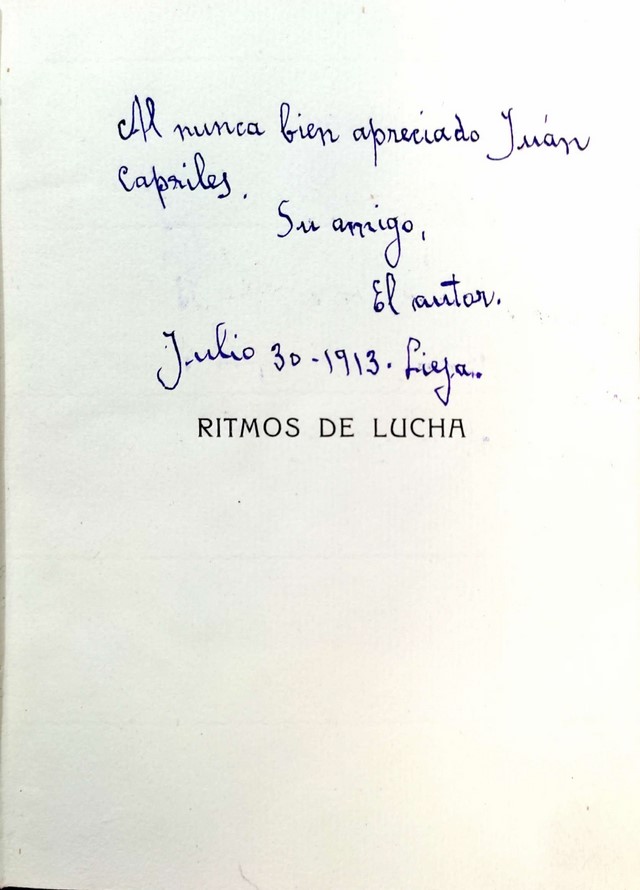 Al nunca bien apreciado Juán
Capriles.
Su amigo,
El autor.
Julio 30-1913. Lieja.
RITMOS DE LUCHA